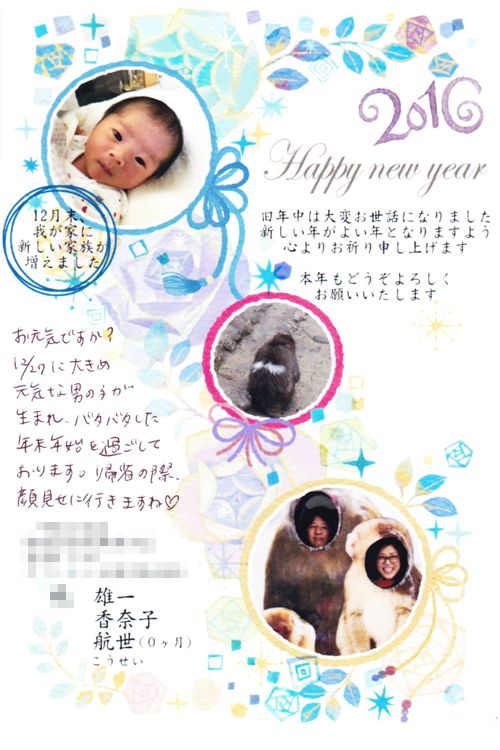 2016
Happy new year
旧年中は大変お世話になりました
新しい年がよい年となりますよう
心よりお祈り申し上げます
本年もどうぞよろしく
お願いいたします
12月末、
我が家に
新しい家族が
増えました
お元気ですか?
12/27に大きめ
元気な男の子が
生まれ、バタバタした
年末年始を過ごして
おります。帰省の際、
顔見せに行きますね♡
雄一
香奈子
航世(0ヶ月)
こうせい